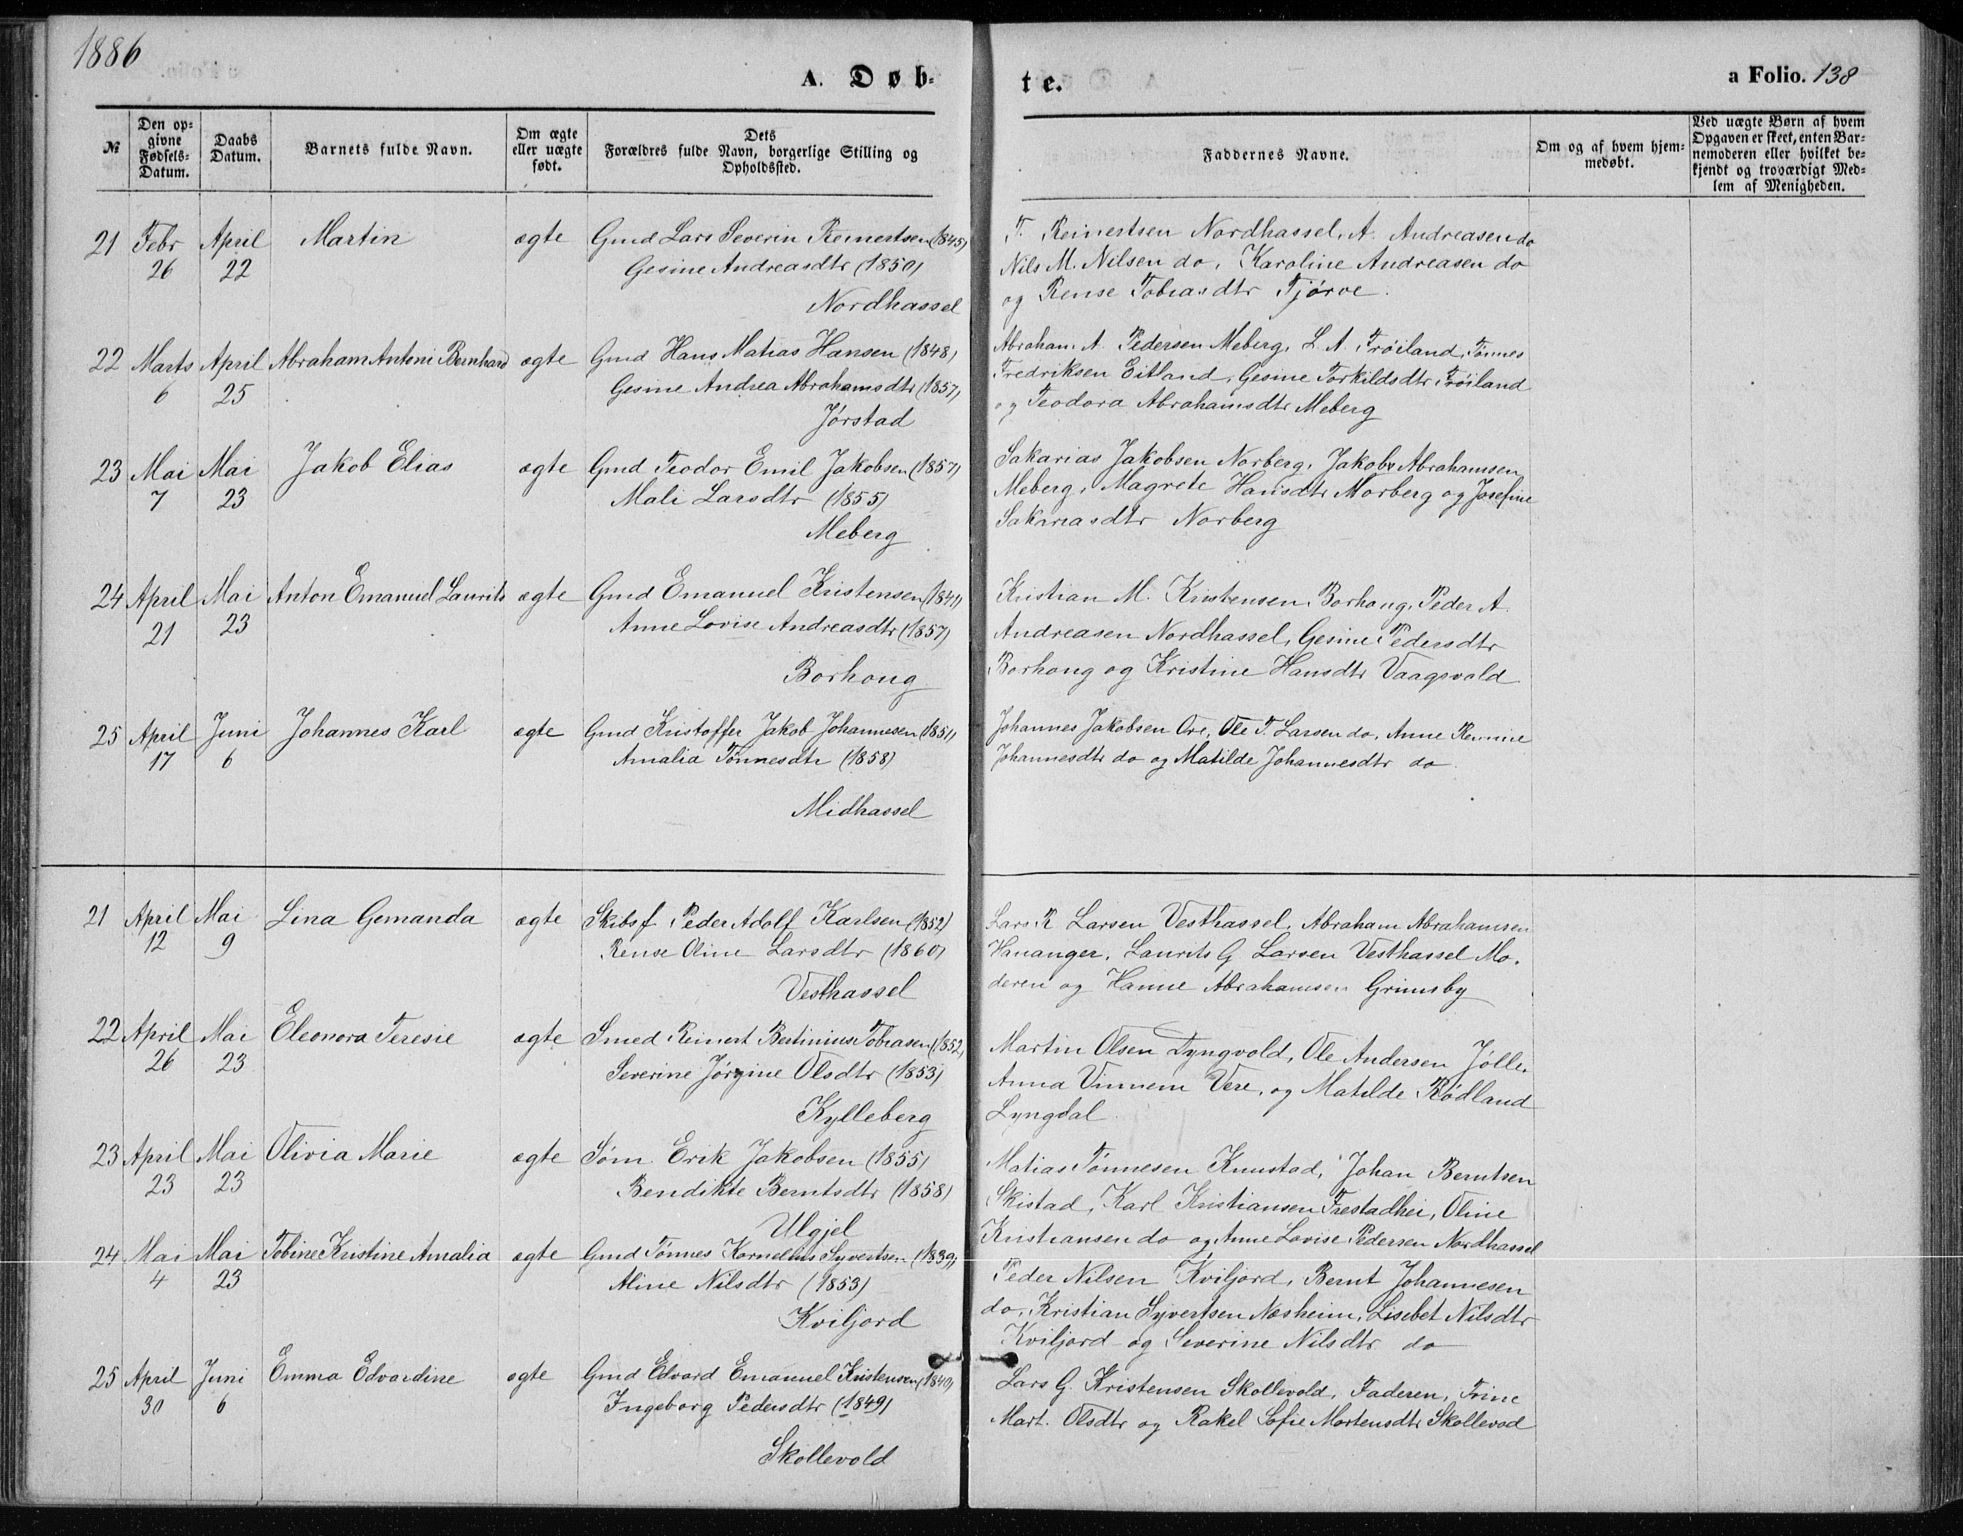 1886
A. Døb-
te.
a Folio. 138
№
Den op-
givne
Fødsels-
Datum.
Daabs
Datum.
Barnets fulde Navn.
Om ægte
eller uægte
født.
Dets
Forældres fulde Navn, borgerlige Stilling og
Opholdssted.
Faddernes Navne.
Om og af hvem hjem-
medøbt.
Ved uægte Børn af hvem
Opgaven er skeet, enten Bar-
nemoderen eller hvilket be-
kjendt og troværdigt Med-
lem af Menigheden.
21 Febr April Martin ægte Gmd Lars Severin Reinertsen (1845)
26 22 Gesine Andreasdtr (1850)
Nordhassel
T. Reinertsen Nordhassel, A. Andreasen do
Nils M. Nilsen do, Karoline Andreasen do
og Rense Tobiasdtr Tjørve.
22 Marts April Abraham Antoni Bernhard ægte Gmd Hans Matias Hansen (1848)
6 25 Gesine Andrea Abrahamsdtr (1857)
Jørstad
Abraham A. Pedersen Meberg, L. A. Frøiland, Tønnes
Fredriksen Eitland, Gesine Torkildsdtr Frøiland
og Teodora Abrahamsdtr Meberg
23 Mai Mai Jakob Elias ægte Gmd Teodor Emil Jakobsen (1857)
7 23 Mali Larsdtr (1855)
Meberg
Sakarias Jakobsen Norberg, Jakob Abrahamsen
Meberg, Magrete Hansdtr Norberg og Josefine
Sakariasdtr Norberg
24 April Mai Anton Emanuel Laurits ægte Gmd Emanuel Kristensen (1841)
21 23 Anne Lovise Andreasdtr (1857)
Borhoug
Kristian M. Kristensen, Borhoug, Peder A.
Andreasen Nordhassel, Gesine Pedersdtr
Borhoug og Kristine Hansdtr Vaagsvold
25 April Juni Johannes Karl ægte Gmd Kristoffer Jakob Johannesen (1851)
17 6 Amalia Tønnesdtr (1858)
Midhassel
Johannes Jakobsen Ore, Ole T. Larsen do, Anne
Johannesdtr do og Matilde Johannesdtr do
21 April Mai Lina Gemanda ægte Skibsf. Peder Adolf Karlsen (1852)
12 9 Rense Oline Larsdtr (1860)
Vesthassel
Lars R Larsen Vesthassel, Abraham Abrahamsen
Hananger, Laurits G Larsen Vesthassel Mo-
deren og Hanne Abrahamsen Grimsby
22 April Mai Eleonora Teresie ægte Smed Reinert Bertinius Tobiasen (1852)
26 23 Severine Jørgine Olsdtr (1853)
Kylleberg
Martin Olsen Lyngvold, Ole Andersen Jølle,
Anna Vinnem Vere, og Matilde Rødland
Lyngdal
23 April Mai Olivia Marie ægte Søm. Erik Jakobsen (1855)
23 23 Bendikte Berntsdtr (1858)
Ulgjel
Matias Tønnesen Knustad, Johan Berntsen
Skistad, Karl Kristiansen Frestadhei, Oline
Kristiansen do og Anne Lovise Pedersen Nordhassel
24 Mai Mai Tobine Kristine Amalia ægte Gmd Tønnes Kornelius Syvertsen (1839)
4 23 Aline Nilsdtr (1853)
Kviljord
Peder Nilsen Kviljord, Bernt Johannesen
do, Kristian Syvertsen Næsheim, Lisebet Nilsdtr
Kviljord og Severine Nilsdtr do
25 April Juni Emma Edvardine ægte Gmd Edvard Emanuel Kristensen (1840)
30 6 Ingeborg Pedersdtr (1849)
Skollevold
Lars G. Kristensen Skollevold, Faderen, Trine
Mart. Olsdtr og Rakel Sofie Mortensdtr Skollevod